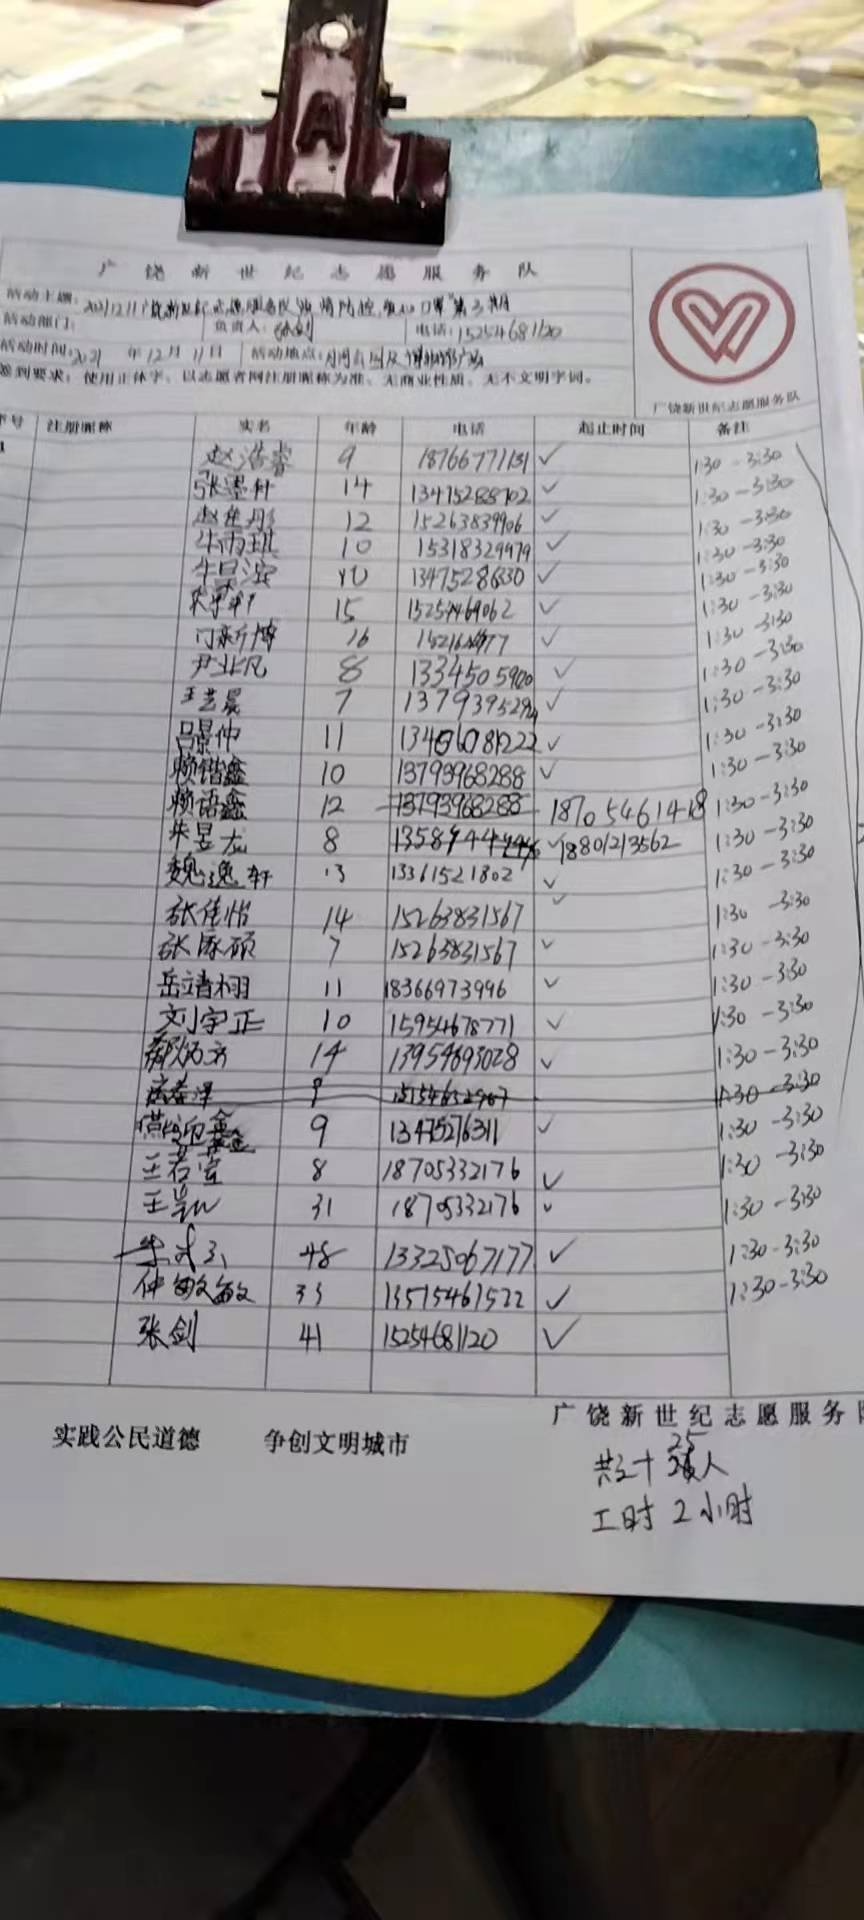 A
广饶新世纪志愿服务队
活动主题:2021.12.11广饶新世纪志愿服务队"疫情防控, 口罩"第3期
活动部门: 负责人:张剑 电话:15254681120
活动时间:2021年12月11日 活动地点:
签到要求:使用正体字、以志愿者网注册昵称为准、无商业性质、无不文明字词。
广饶新世纪志愿服务队
序号 注册昵称 实名 年龄 电话 起止时间 备注
1 赵浩睿 9 18766771131 ✓ 1:30-3:30
14 13475288702 ✓ 1:30-3:30
赵佳彤 12 15263839906 ✓ 1:30-3:30
牛雨琪 10 15318329479 ✓ 1:30-3:30
牛昊滨 10 ✓ 1:30-3:30
15 15254469062 ✓ 1:30-3:30
门新博 16 ✓ 1:30-3:30
尹业凡 8 13345059900 ✓ 1:30-3:30
王艺晨 7 ✓ 1:30-3:30
吕景仲 11 ✓ 1:30-3:30
赖锴鑫 10 13793968288 ✓ 1:30-3:30
赖语鑫 12 13793968288 18705461418 1:30-3:30
朱昱龙 8 ✓ 18801213562 1:30-3:30
魏逸轩 13 13361521802 ✓ 1:30-3:30
张佳怡 14 15263831567 ✓ 1:30-3:30
张硕 7 15263831567 ✓ 1:30-3:30
岳靖栩 11 18366973996 ✓ 1:30-3:30
刘宇正 10 15954678771 ✓ 1:30-3:30
14 13954693028 ✓ 1:30-3:30
9 15154632967 1:30-3:30
鑫 9 13475276311 ✓ 1:30-3:30
王若萱 8 18705332176 ✓ 1:30-3:30
王 31 18705332176 ✓ 1:30-3:30
48 13325067177 ✓ 1:30-3:30
仲敏敏 33 13515461522 ✓ 1:30-3:30
张剑 41 15254681120 ✓
实践公民道德 争创文明城市
广饶新世纪志愿服务队
共 25人
工时2小时